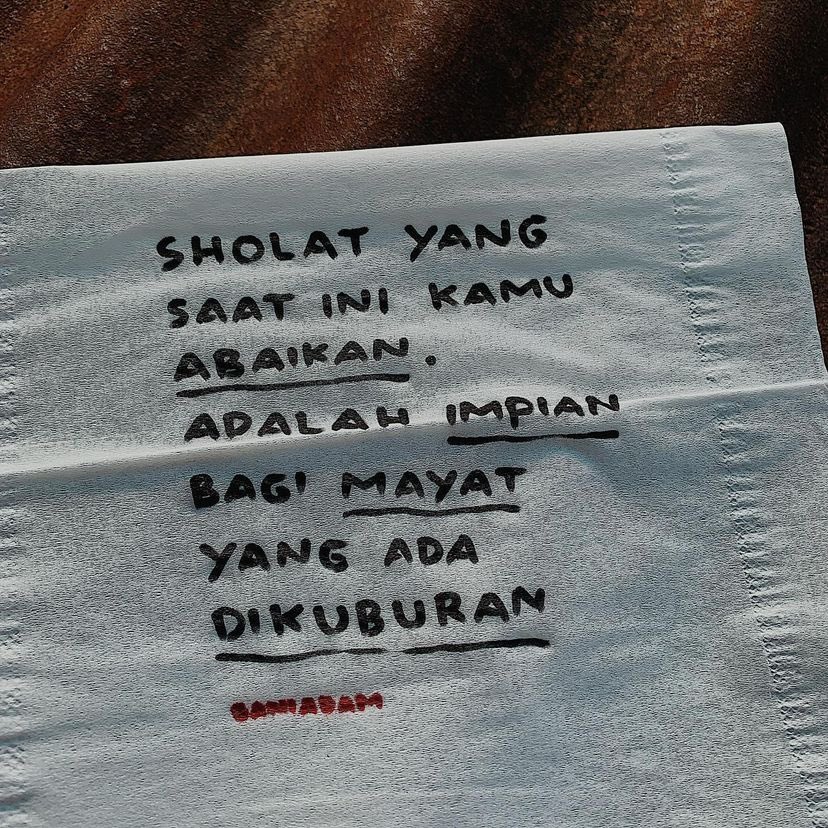 SHOLAT YANG
SAAT INI KAMU
ABAIKAN.
ADALAH IMPIAN
BAGI MAYAT
YANG ADA
DIKUBURAN
BANIADAM